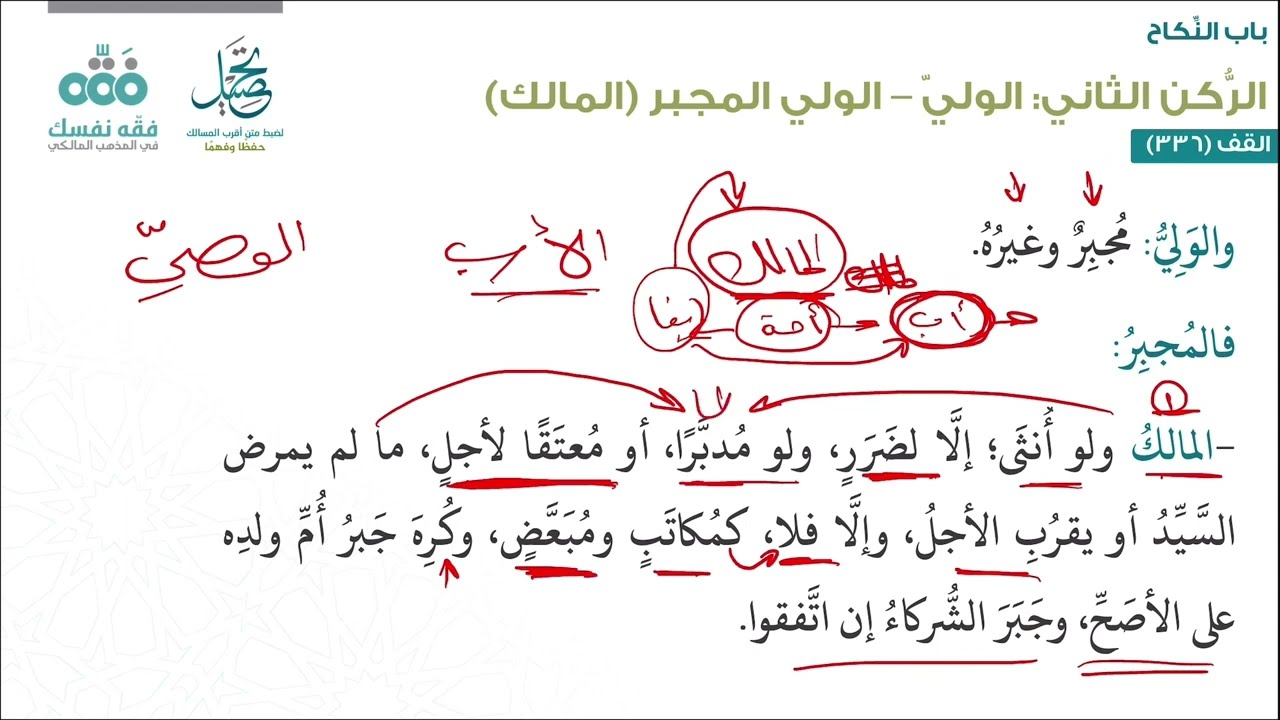 باب النِّكاح
الرُّكن الثاني: الوليّ – الولي المجبر (المالك)
القف (٣٣٦)
تحصيل
لضبط متن أقرب المسالك
حفظا وفهمًا
فقّه نفسك
في المذهب المالكي
والوَلِيُّ: مُجبِرٌ وغيرُهُ.
المالك
الأب
الوصيّ
أمة
أب
فالمُجبِرُ:
١
-المالكُ ولو أُنثَى؛ إلَّا لضَرَرٍ، ولو مُدبَّرًا، أو مُعتَقًا لأجلٍ، ما لم يمرض
السَّيِّدُ أو يقرُبِ الأجلُ، وإلَّا فلا، كمُكاتَبٍ ومُبَعَّضٍ، وكُرِهَ جَبرُ أُمِّ ولدِه
على الأصَحِّ، وجَبَرَ الشُّركاءُ إن اتَّفقوا.